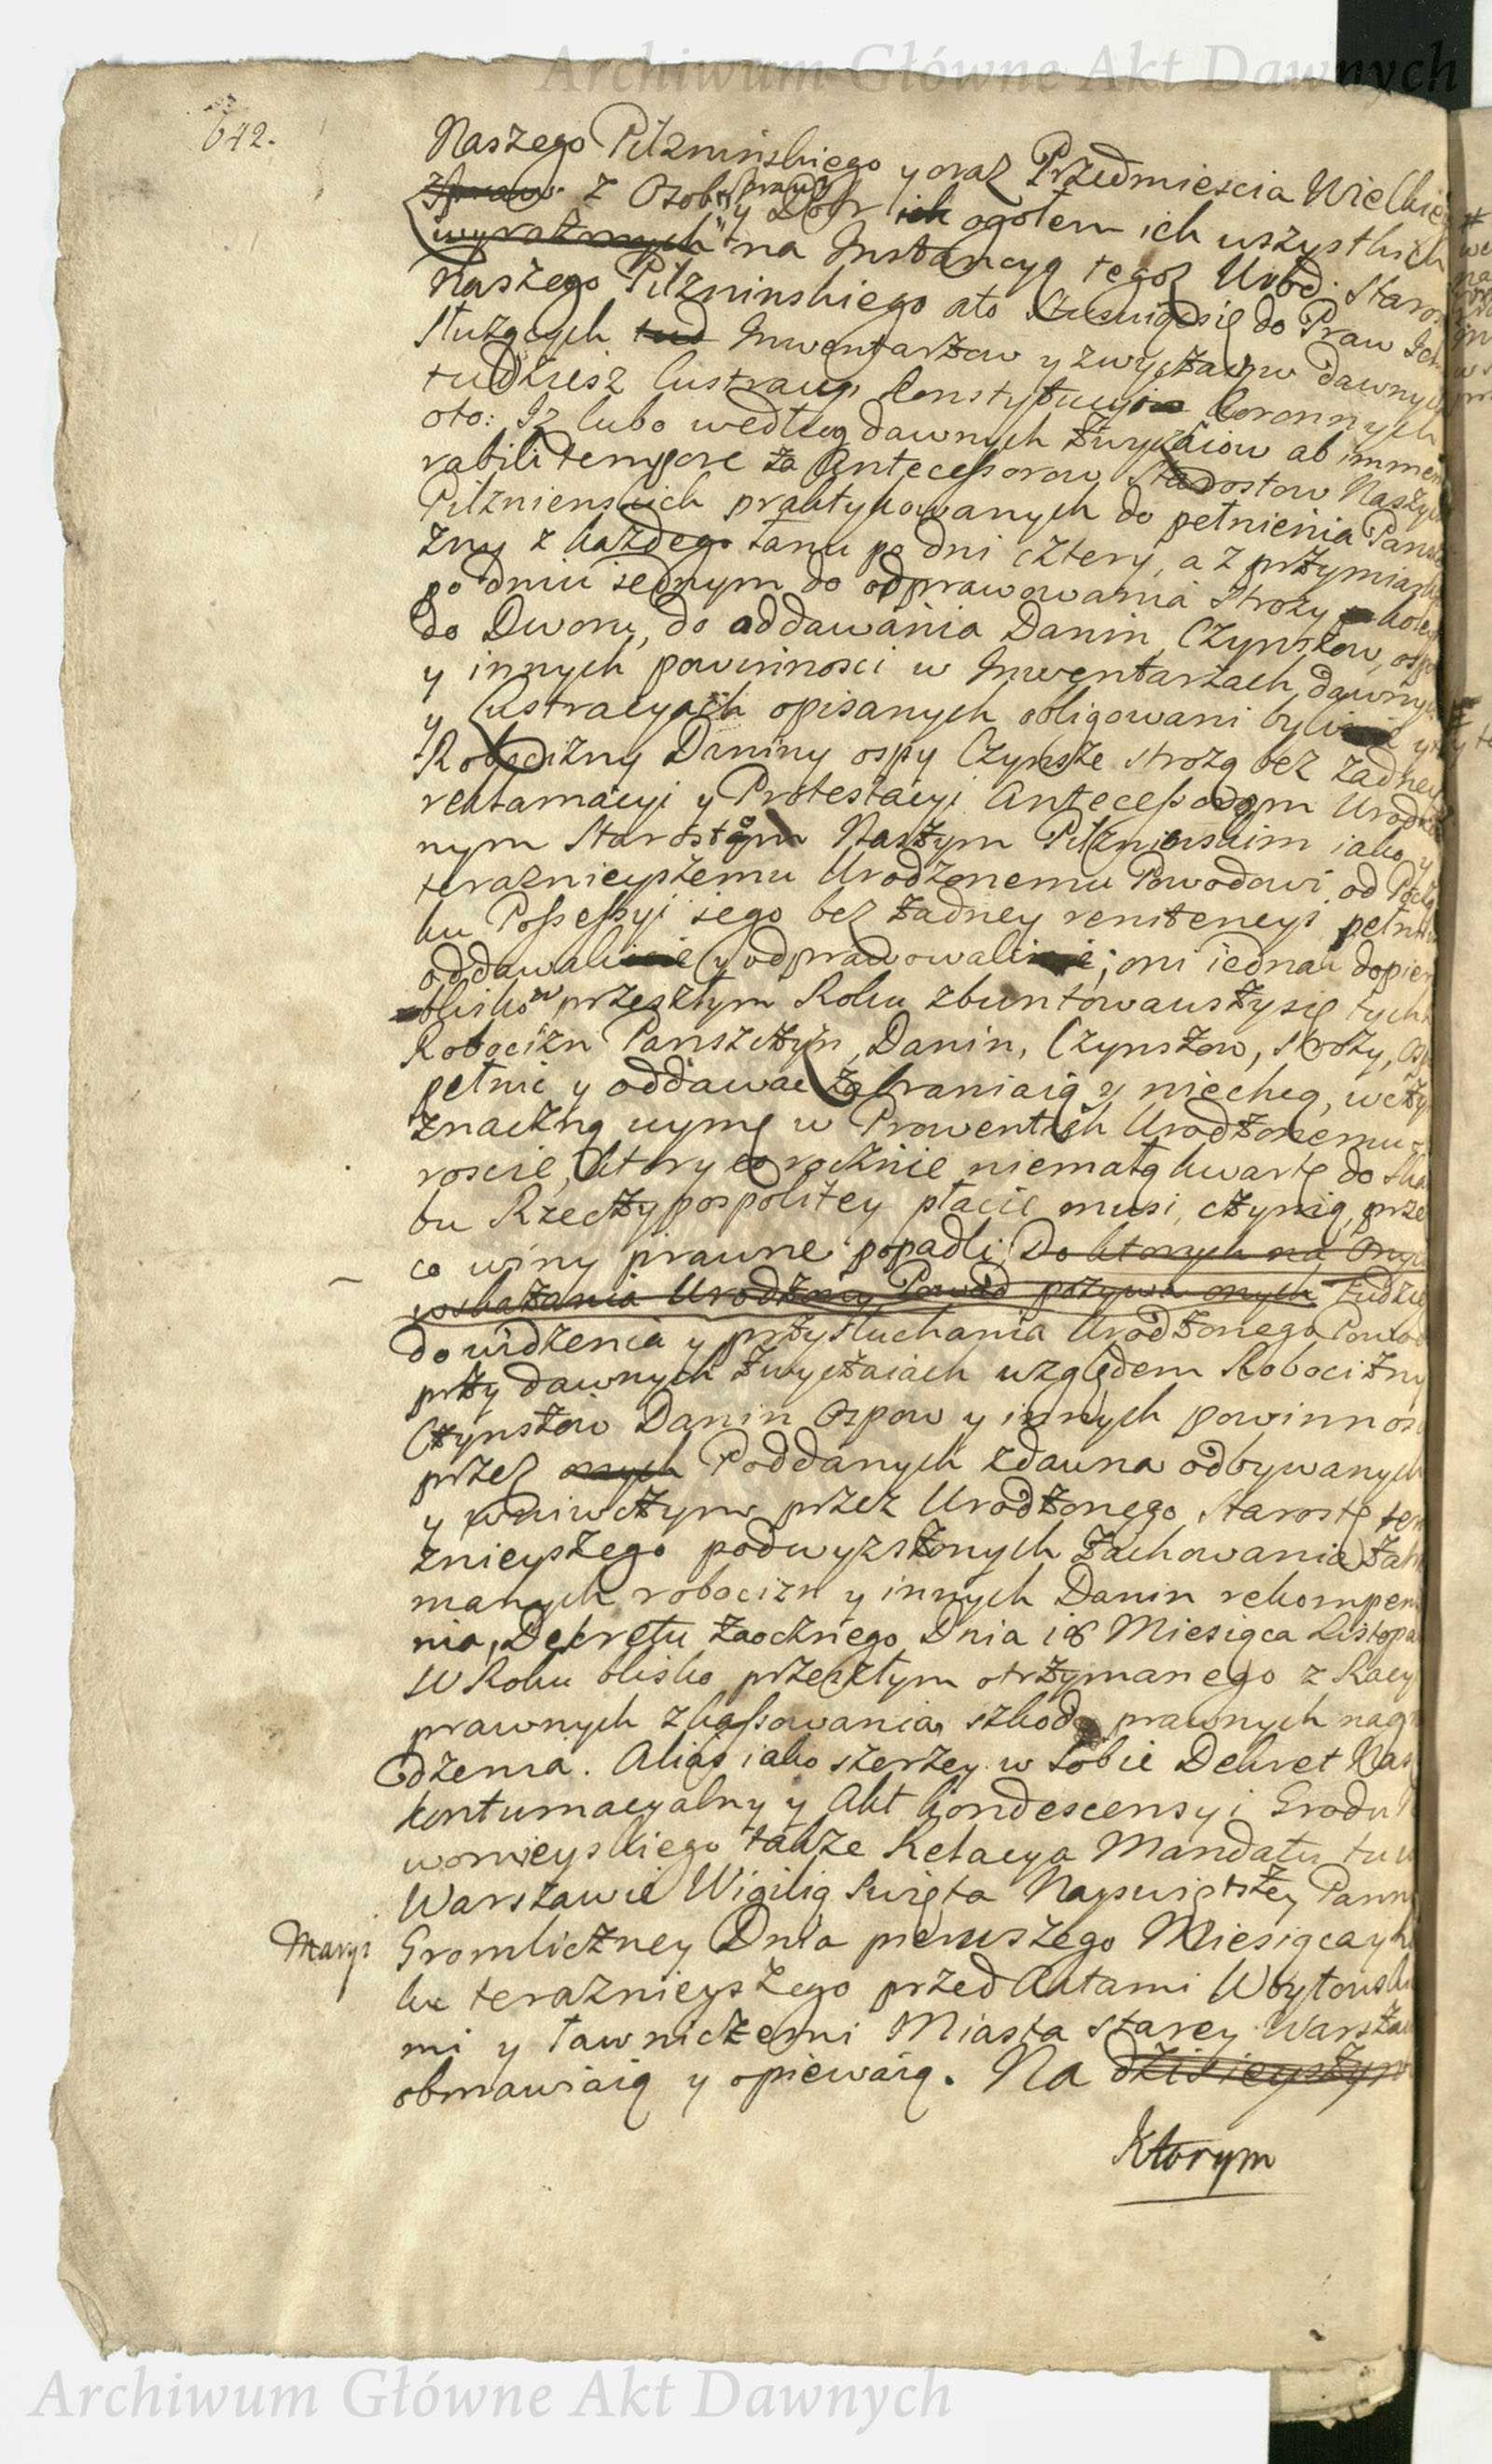 Archiwum Główne Akt Dawnych
642.
Naszego Pilzninskiego y oraz Przedmiescia Wielkie
z Osob, Sprawy y Dobr ich ogołem ich wszystkich
wyraznych na Instancyą tegoz Urod. Staros
Naszego Pilzninskiego ato Stosuiąc się do Praw Ich
Słuzących Inwentarzow y zwyczaiow dawnych
tudziesz Lustracyi Konstytucyi Koronnych
oto: Iz lubo według dawnych Zwyczaiow ab imme
rabili tempore za Antecessorow Starostow Naszych
Pilznienskich praktykowanych do pełnienia Pansz
zny z kazdego łanu po dni cztery, a z przymiark
po dniu iednym do odprawowania Strozy koley
do Dworu, do oddawania Danin, Czynszow, osp
y innych powinnosci w Inwentarzach dawnych
y Lustracyach opisanych obligowani byli y
Robocizny Daniny ospy Czynsze Strozą bez zadney
reklamacyi y Protestacyi Antecessorom Urodzo
nym Starostom Naszym Pilznienskim iako y
teraznieyszemu Urodzonemu Powodowi od Począ
ku Possessyi iego bez zadney renitencyi pełnili
oddawali y odprawowali; oni iednak dopier
blisko w przeszłym Roku zbuntowawszysię tych
Robocizn Panszczyzn, Danin, Czynszow, Strozy, Os
pełnic y oddawac Zabraniaią y niechcą, w czy
znaczną uymę w Prowentach Urodzonemu
roscie, ktory co rocznie niemałą kwartę do Ska
bu Rzeczypospolitey płacic musi, czynią, prze
co winy prawne popadli, Do ktorych na Onych
wskazania Urodzony Powod pozywa onych Tudzie
do widzenia y przysłuchania Urodzonego Powod
przy dawnych Zwyczaiach względem Robocizny
Czynszow Danin Ospow y innych powinnosc
przez onych Poddanych zdawna odbywanych
y wniwczym przez Urodzonego Starostę ter
znieyszego podwyzszonych Zachowania Zatrz
manych robocizn y innych Danin rekompen
nia, Dekretu Zaocznego Dnia 18 Miesiąca Listopa
W Roku blisko przeszłym otrzymanego z Racy
prawnych zkassowania szkod prawnych nagr
dzenia. Alias iako szerzey w Sobie Dekret Nasz
kontumacyalny y Akt kondescensyi Grodu
wornieyskiego takze Relacya Mandatu tu w
Warszawie Wigilią Swięta Nayswiętszey Pann
Maryi Gromniczney Dnia pierwszego Miesiąca y
ku teraznieyszego przed Aktami Woytowski
mi y Ławniczemi Miasta Starey Warszaw
obmawiaią y opiewaią. Na dzisieyszym
Ktorym
Archiwum Główne Akt Dawnych